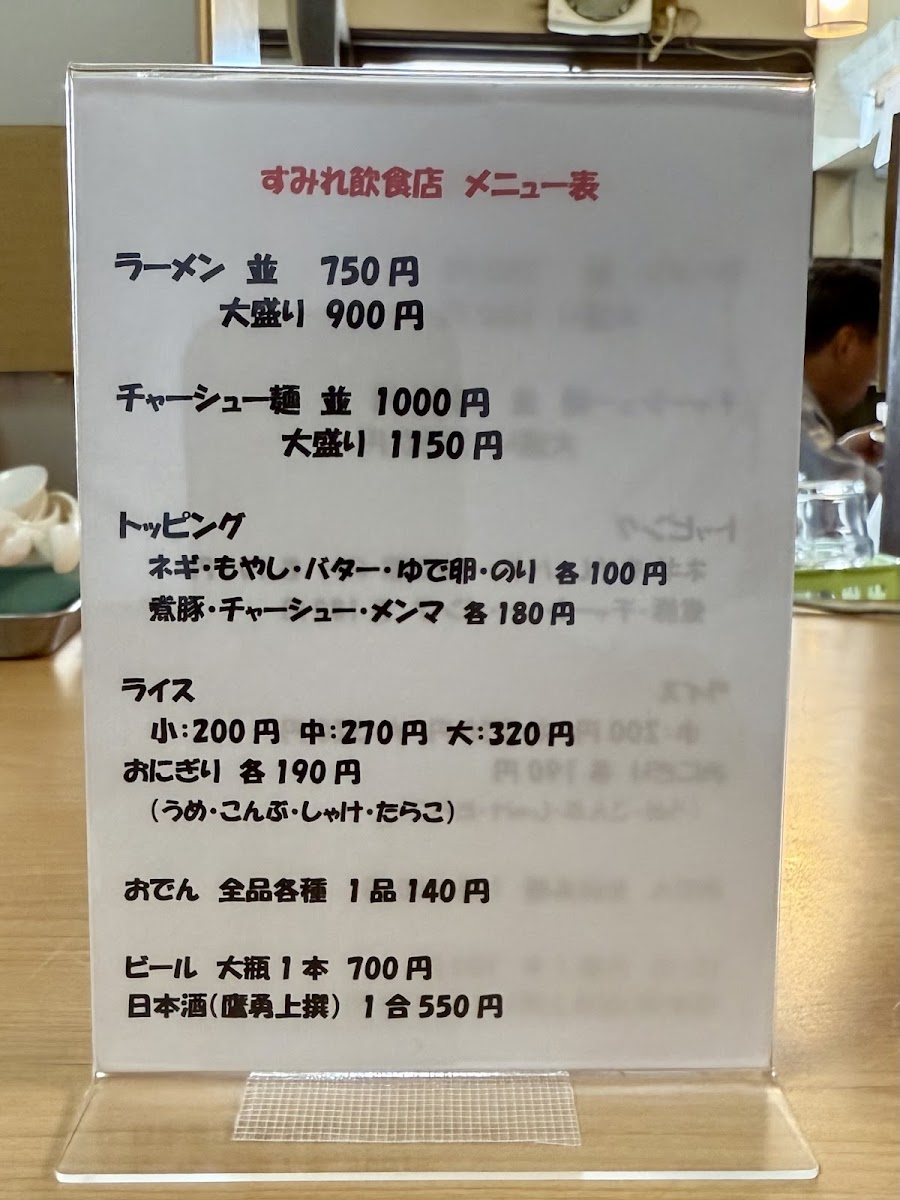 すみれ飲食店 メニュー表
ラーメン 並 750円
大盛り 900円
チャーシュー麺 並 1000円
大盛り 1150円
トッピング
ネギ・もやし・バター・ゆで卵・のり 各100円
煮豚・チャーシュー・メンマ 各180円
ライス
小:200円 中:270円 大:320円
おにぎり 各190円
(うめ・こんぶ・しゃけ・たらこ)
おでん 全品各種 1品140円
ビール 大瓶1本 700円
日本酒(鷹勇上撰) 1合550円